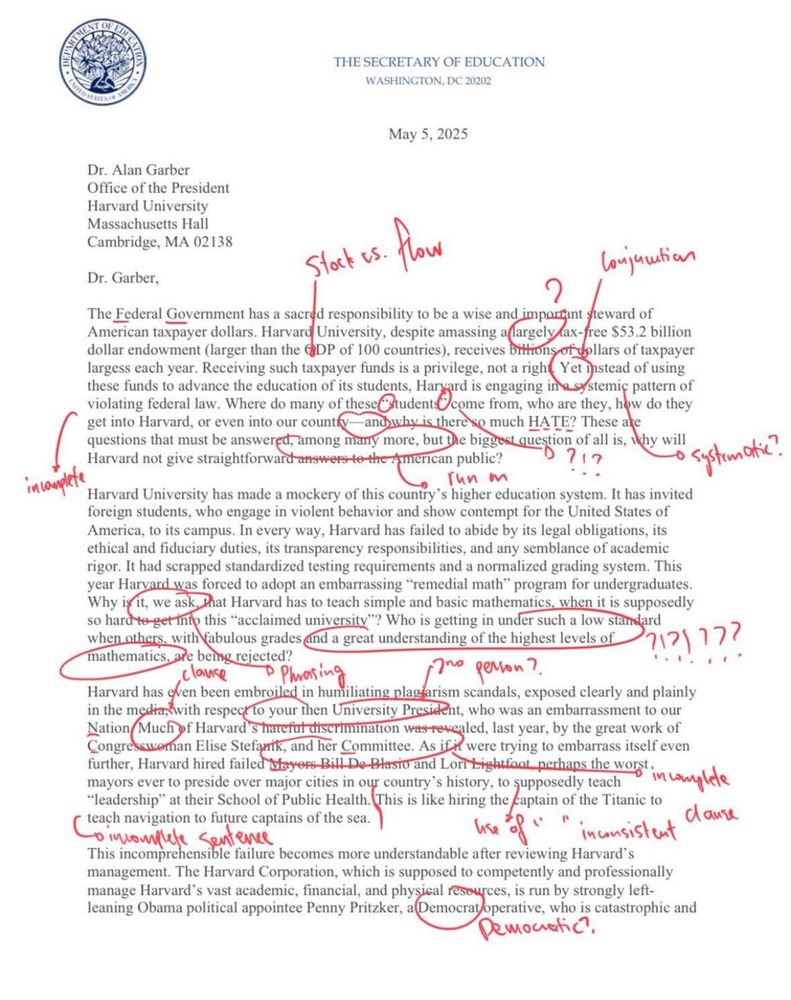 DEPARTMENT OF EDUCATION
UNITED STATES OF AMERICA
THE SECRETARY OF EDUCATION
WASHINGTON, DC 20202
May 5, 2025
Dr. Alan Garber
Office of the President
Harvard University
Massachusetts Hall
Cambridge, MA 02138
Stock vs. flow
Conjunction
Dr. Garber,
?
The Federal Government has a sacred responsibility to be a wise and important steward of
American taxpayer dollars. Harvard University, despite amassing a largely tax-free $53.2 billion
dollar endowment (larger than the GDP of 100 countries), receives billions of dollars of taxpayer
largess each year. Receiving such taxpayer funds is a privilege, not a right. Yet instead of using
these funds to advance the education of its students, Harvard is engaging in a systemic pattern of
violating federal law. Where do many of these “students” come from, who are they, how do they
get into Harvard, or even into our country—and why is there so much HATE? These are
questions that must be answered, among many more, but the biggest question of all is, why will
Harvard not give straightforward answers to the American public?
?!?
systematic?
run on
incomplete
Harvard University has made a mockery of this country’s higher education system. It has invited
foreign students, who engage in violent behavior and show contempt for the United States of
America, to its campus. In every way, Harvard has failed to abide by its legal obligations, its
ethical and fiduciary duties, its transparency responsibilities, and any semblance of academic
rigor. It had scrapped standardized testing requirements and a normalized grading system. This
year Harvard was forced to adopt an embarrassing “remedial math” program for undergraduates.
Why is it, we ask, that Harvard has to teach simple and basic mathematics, when it is supposedly
so hard to get into this “acclaimed university”? Who is getting in under such a low standard
when others, with fabulous grades and a great understanding of the highest levels of
mathematics, are being rejected?
?!?!???
clause
Phrasing
2nd person?
Harvard has even been embroiled in humiliating plagiarism scandals, exposed clearly and plainly
in the media, with respect to your then University President, who was an embarrassment to our
Nation. Much of Harvard’s hateful discrimination was revealed, last year, by the great work of
Congresswoman Elise Stefanik, and her Committee. As if it were trying to embarrass itself even
further, Harvard hired failed Mayors Bill De Blasio and Lori Lightfoot, perhaps the worst
mayors ever to preside over major cities in our country’s history, to supposedly teach
“leadership” at their School of Public Health. This is like hiring the captain of the Titanic to
teach navigation to future captains of the sea.
incomplete
clause
use of " " inconsistent
incomplete sentence
This incomprehensible failure becomes more understandable after reviewing Harvard’s
management. The Harvard Corporation, which is supposed to competently and professionally
manage Harvard’s vast academic, financial, and physical resources, is run by strongly left-
leaning Obama political appointee Penny Pritzker, a Democrat operative, who is catastrophic and
Democratic?